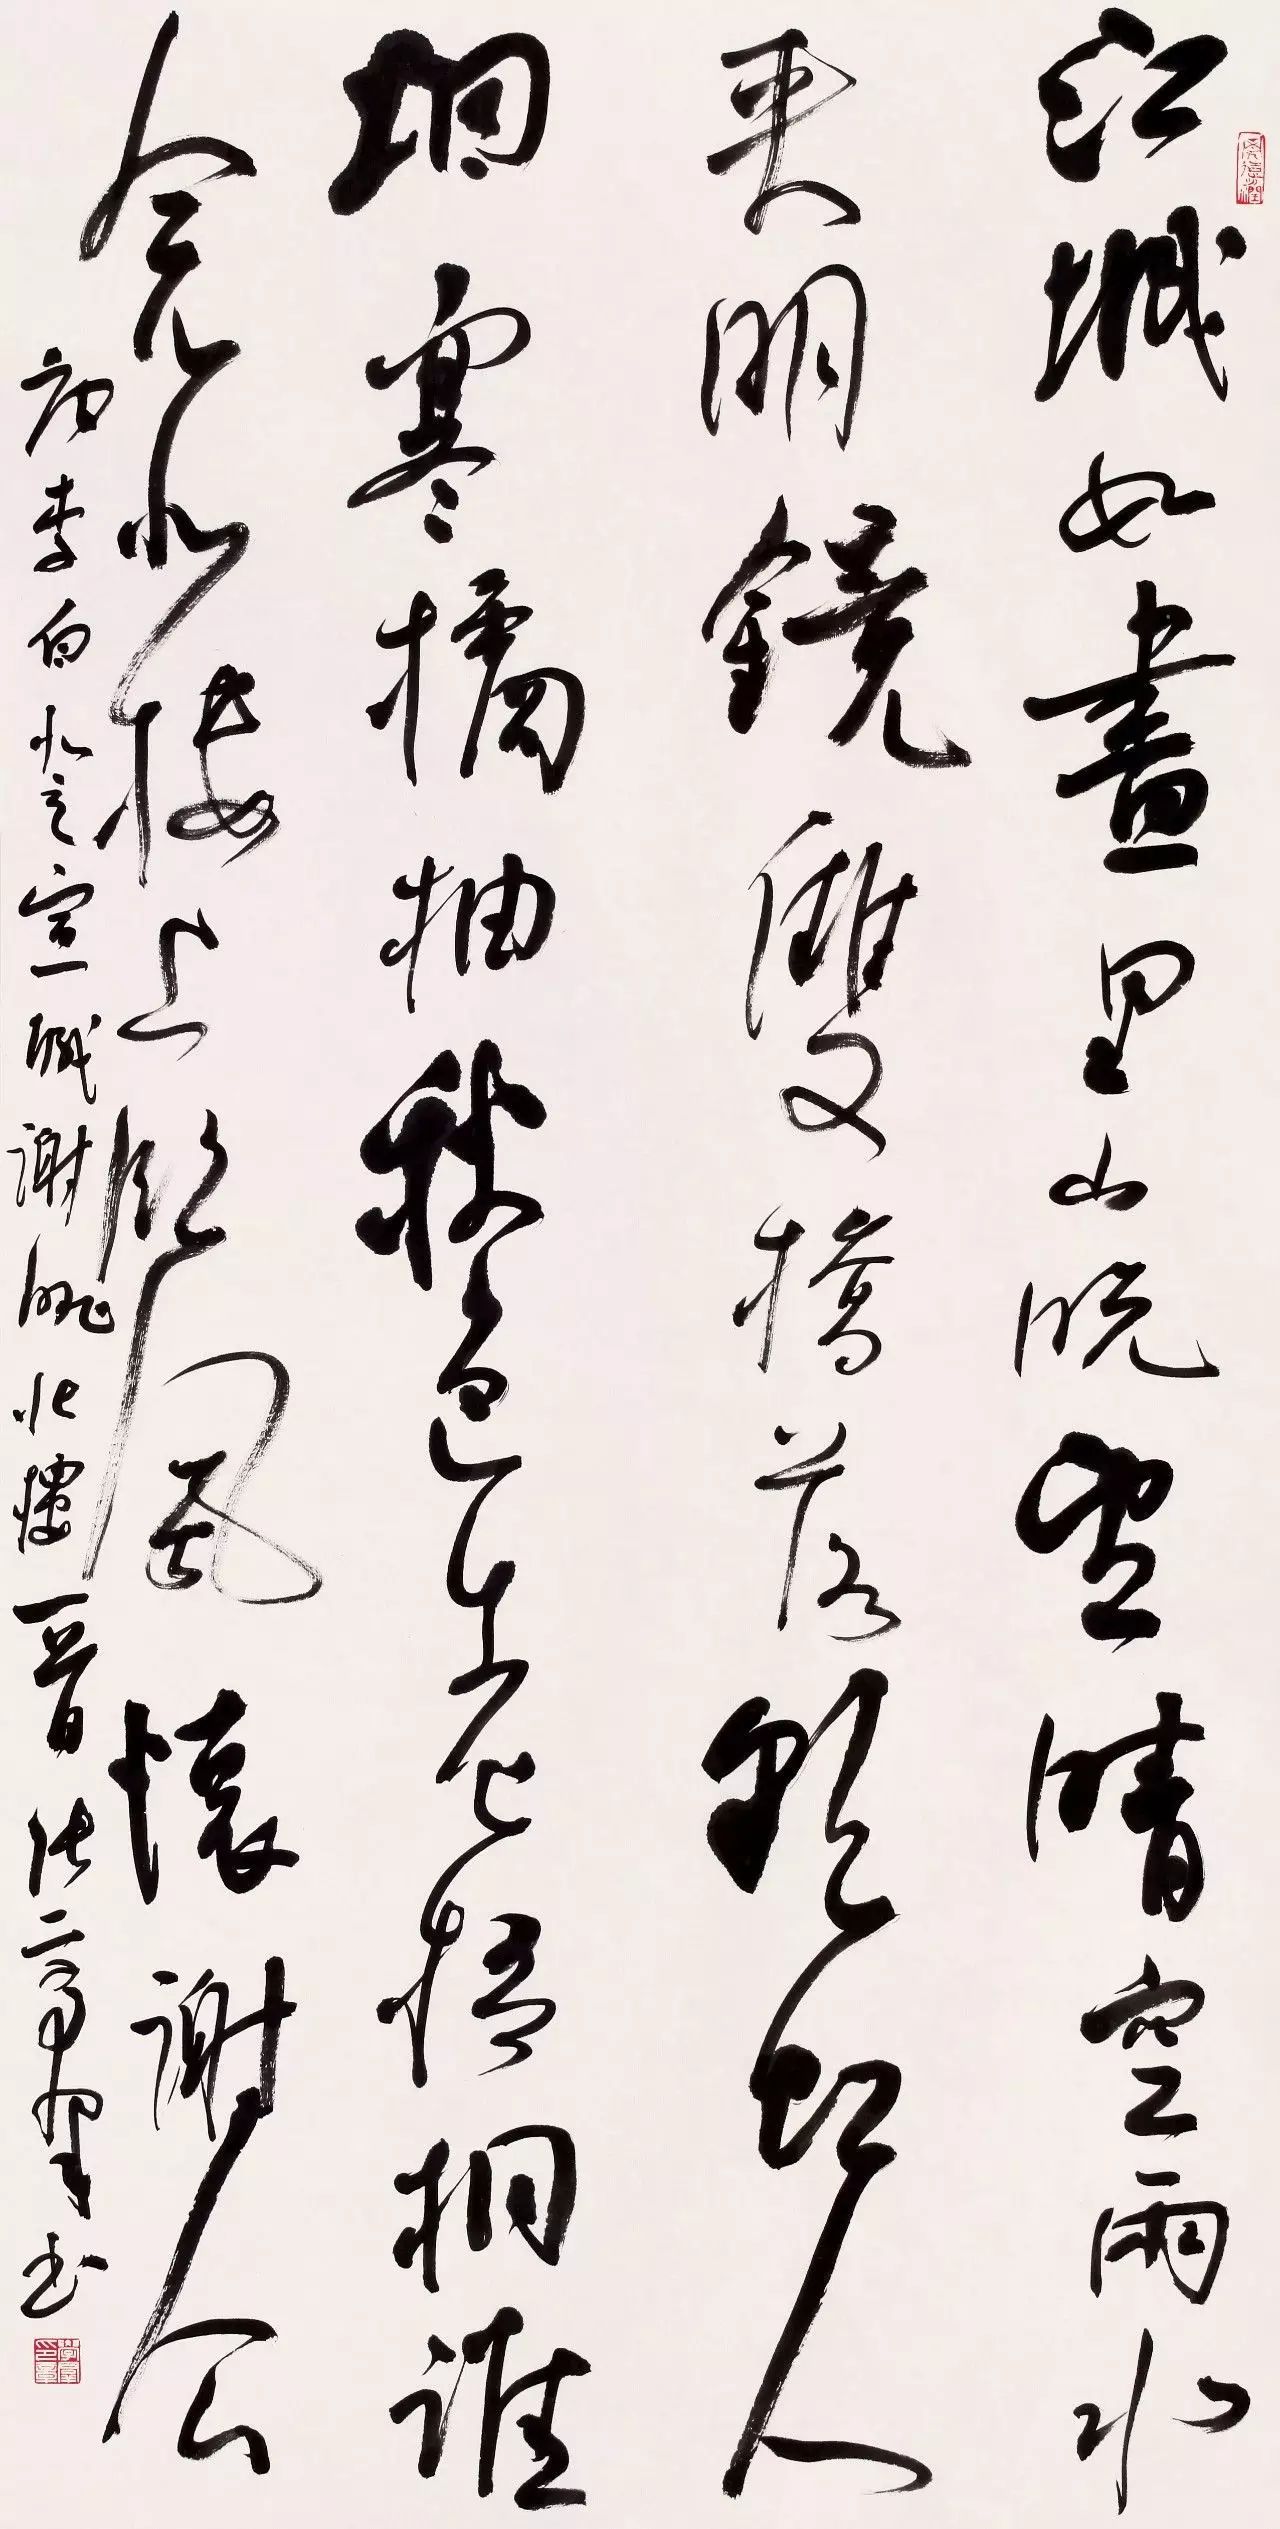 江城如畫里山晚望晴空雨水
夾明鏡雙橋落彩虹人
烟寒橘柚秋色老梧桐誰
念北樓上臨風懷謝公
唐李白秋登宣城謝朓北樓 書